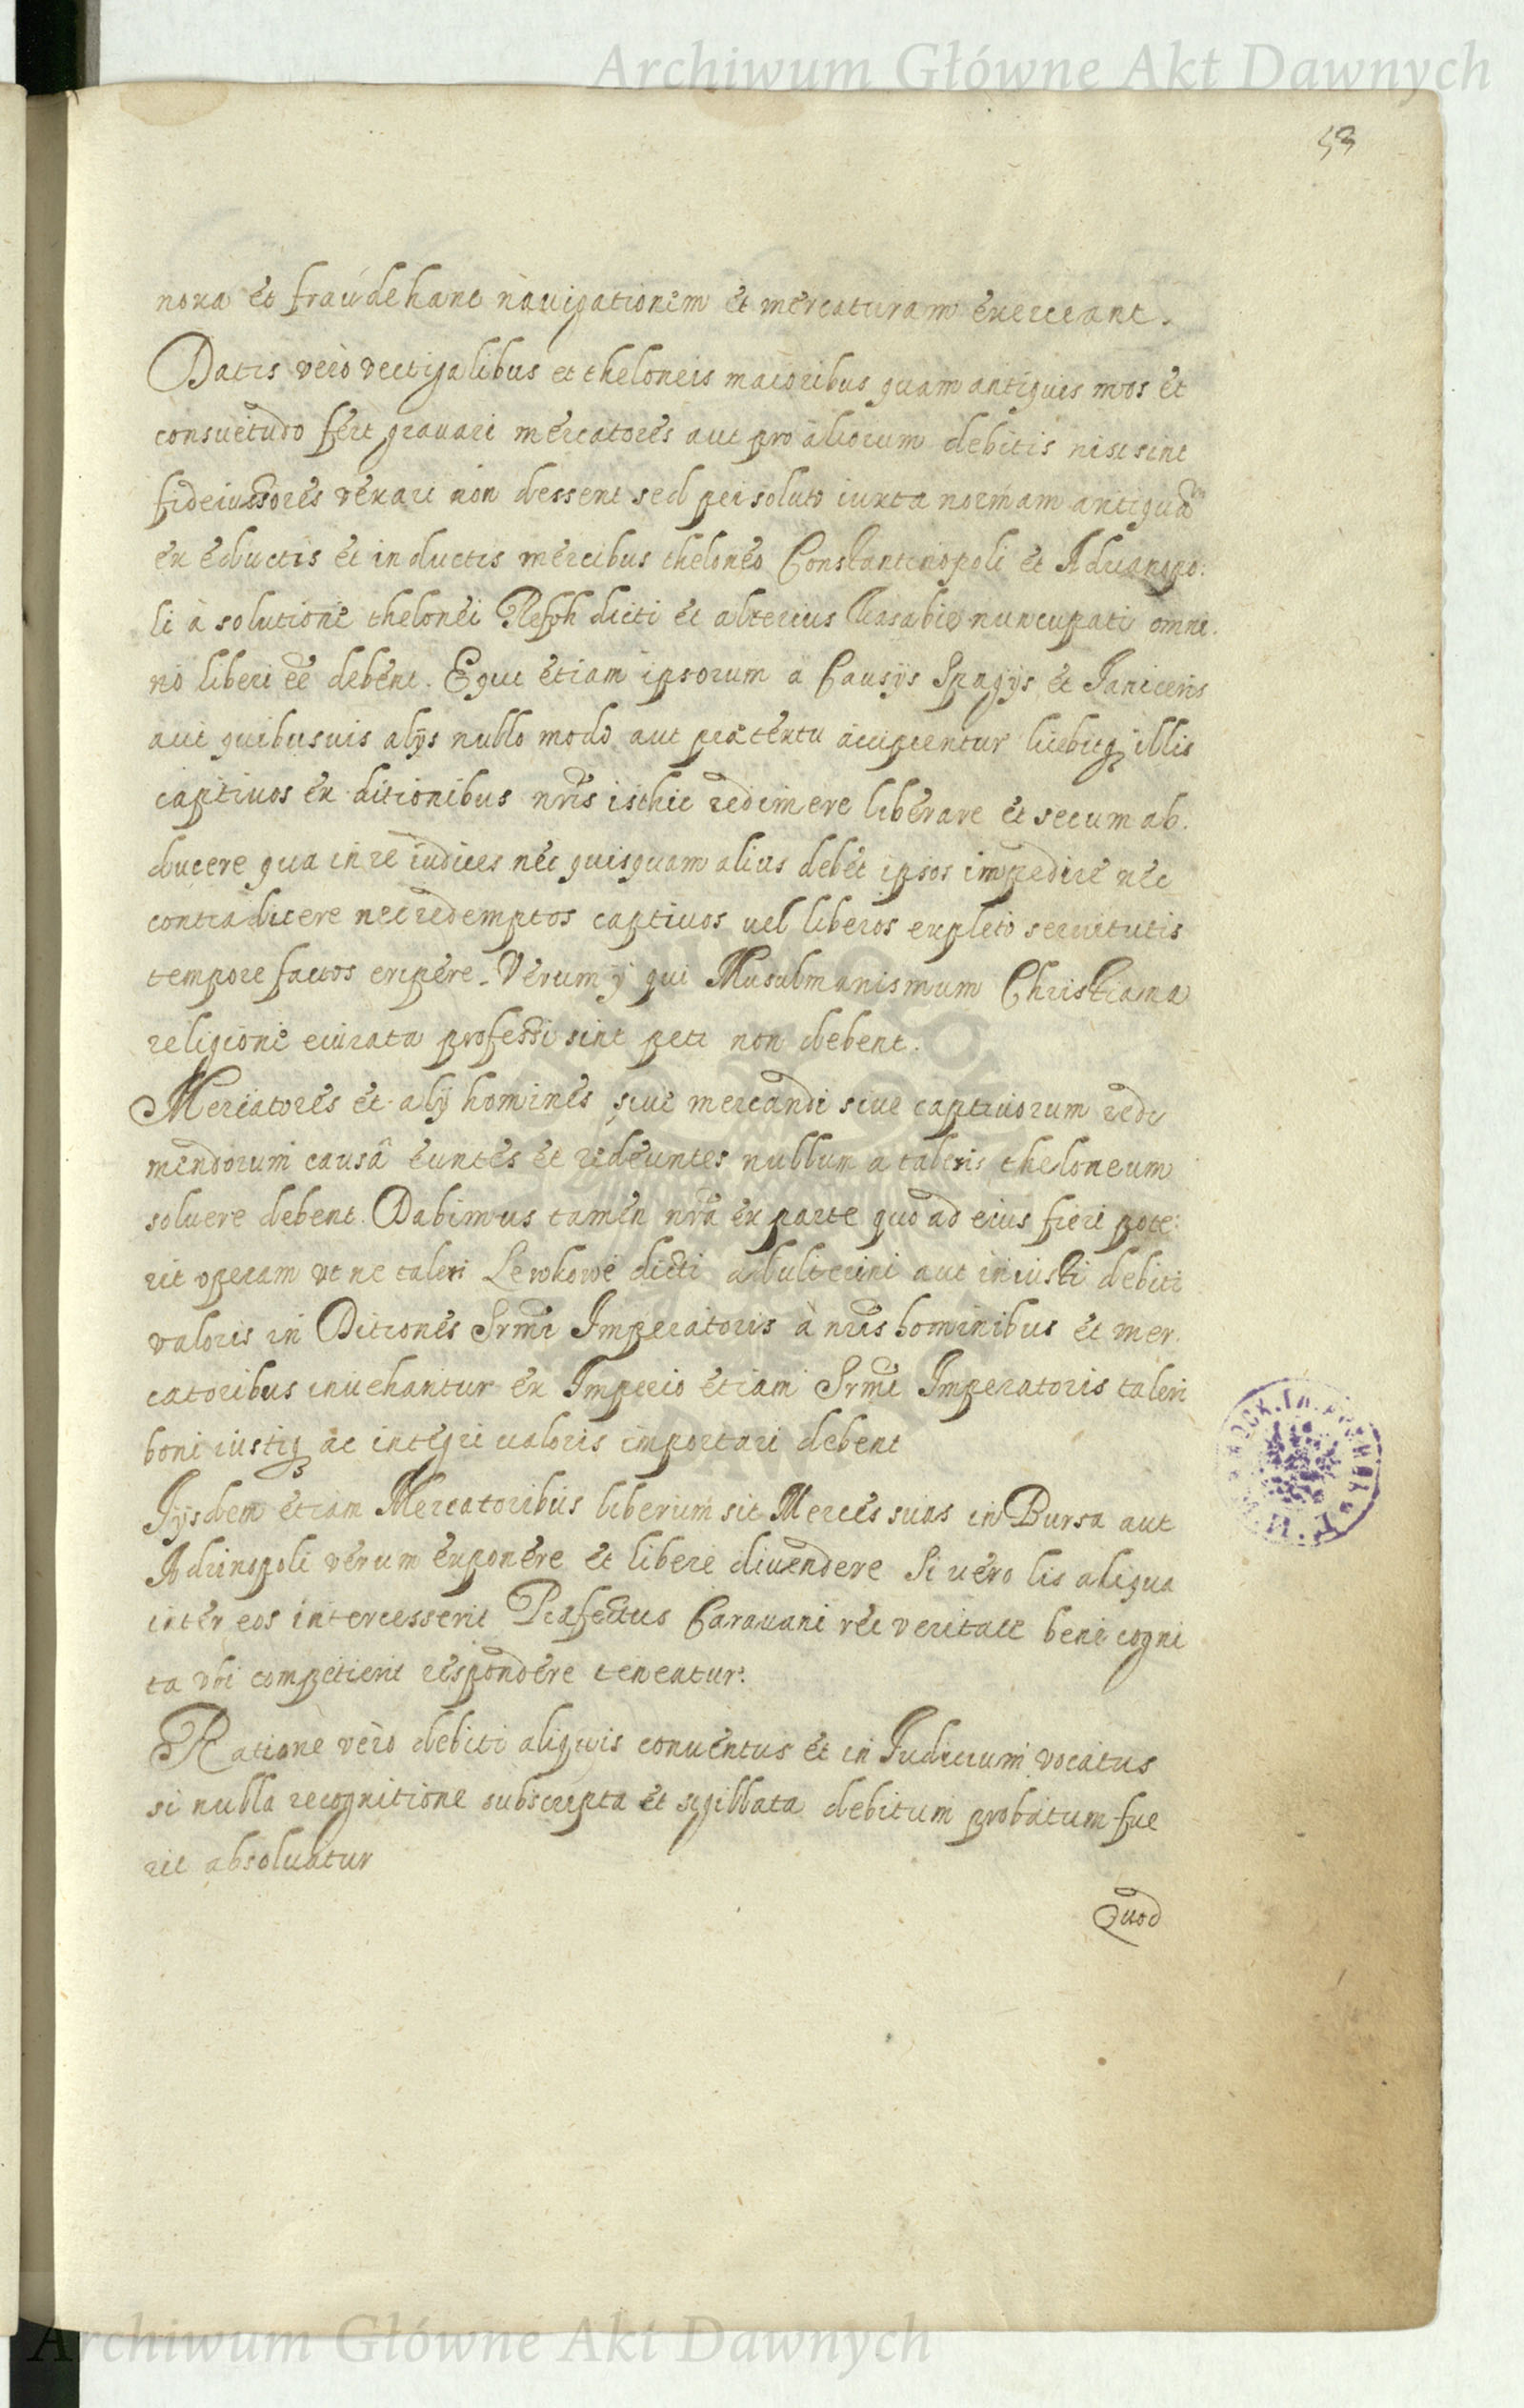 Archiwum Główne Akt Dawnych
53
noxa et fraude hanc nauigationem et mercaturam exerceant.
Datis verò vectigalibus et theloneis maioribus quam antiquis mos et
consuetudo fert grauari mercatores aut pro aliorum debitis nisi sint
fideiussores vexari non dessent sed persoluto iuxta normam antiquã
ex eductis et inductis mercibus theloneo Constantinopoli et Adrianopo:
li à solutione thelonei Refth dicti et alterius Kasabie nuncupati omni.
nò liberi eẽ debent. Equi etiam ipsorum a Causÿs Spagÿs et Janiceris
aut quibusuis alÿs nullo modo aut prætextu accipientur licebitq illis
captiuos ex ditionibus nr̃is isthic redimere liberare et secum ab.
ducere qua in re iudices nec quisquam alius debet ipsos impedire nec
contradicere nec redemptos captiuos uel liberos expleto seruitutis
tempore factos eripere. Verum ÿ qui Musulmanismum Christiana
religione eiurata professi sint peti non debent.
Mercatores et alÿ homines siue mercandi siue captiuorum redi
mendorum causâ euntes et redeuntes nullum a taleris theloneum
soluere debent. Dabimus tamen nr̃a ex parte quo ad eius fieri pote:
rit operam vt ne taleri Lewkowe dicti adulterini aut iniusti debiti
valoris in Ditiones Srm̃i Imperatoris à nr̃is hominibus et mer.
catoribus inuehantur ex Imperio etiam Srm̃i Imperatoris taleri
boni iustiq ac integri ualoris importari debent
Iÿsdem etiam Mercatoribus liberum sit Merces suas in Bursa aut
Adrinopoli verum exponere et libere diuendere Si uero lis aliqua
inter eos intercesserit Præfectus Carauani rei veritate bene cogni
ta vbi competierit respondere teneatur.
Ratione vero debiti aliquis conuentus et in Judicium vocatus
si nulla recognitione subscripta et sigillata debitum probatum fue
rit absoluatur
Quod
Archiwum Główne Akt Dawnych